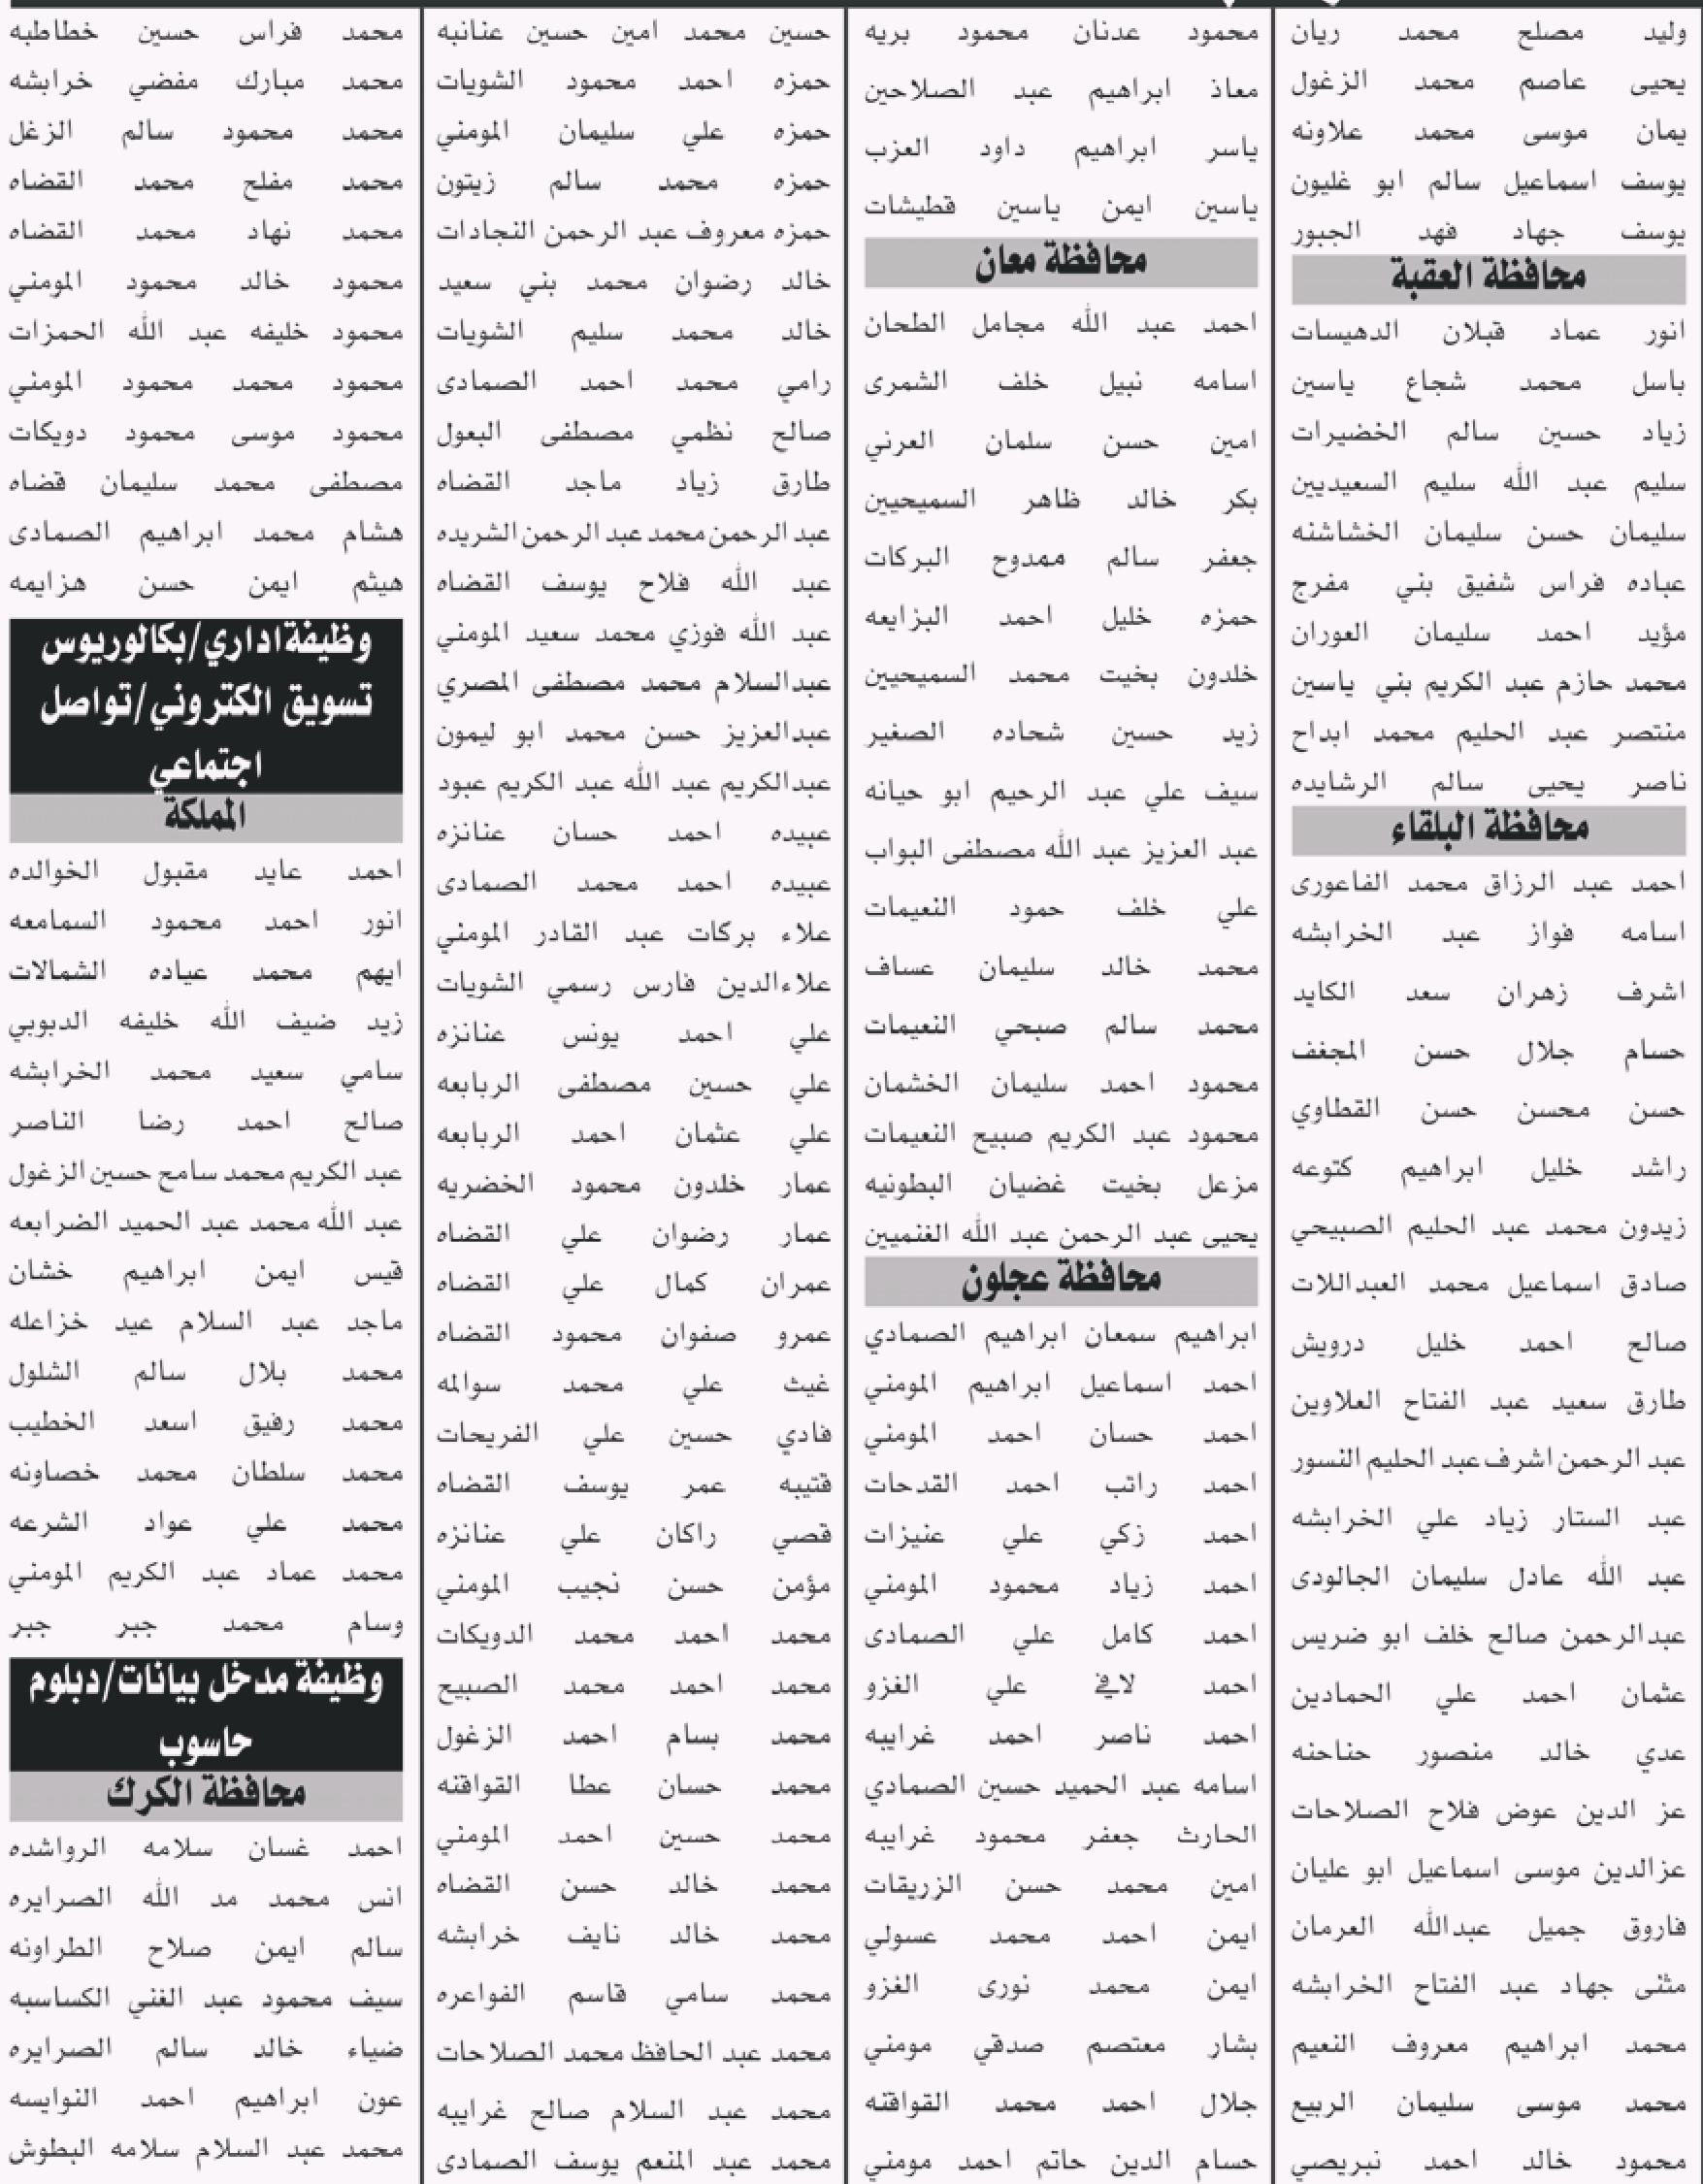 وليد مصلح محمد ريان
يحيى عاصم محمد الزغول
يمان موسى محمد علاونه
يوسف اسماعيل سالم ابو غليون
يوسف جهاد فهد الجبور
محافظة العقبة
انور عماد قبلان الدهيسات
باسل محمد شجاع ياسين
زياد حسين سالم الخضيرات
سليم عبد الله سليم السعيديين
سليمان حسن سليمان الخشاشنه
عباده فراس شفيق بني مفرج
مؤيد احمد سليمان العوران
محمد حازم عبد الكريم بني ياسين
منتصر عبد الحليم محمد ابداح
ناصر يحيى سالم الرشايده
محافظة البلقاء
احمد عبد الرزاق محمد الفاعورى
اسامه فواز عبد الخرابشه
اشرف زهران سعد الكايد
حسام جلال حسن المجغف
حسن محسن حسن القطاوي
راشد خليل ابراهيم كتوعه
زيدون محمد عبد الحليم الصبيحي
صادق اسماعيل محمد العبداللات
صالح احمد خليل درويش
طارق سعيد عبد الفتاح العلاوين
عبد الرحمن اشرف عبد الحليم النسور
عبد الستار زياد علي الخرابشه
عبد الله عادل سليمان الجالودى
عبدالرحمن صالح خلف ابو ضريس
عثمان احمد علي الحمادين
عدي خالد منصور حناحنه
عز الدين عوض فلاح الصلاحات
عزالدين موسى اسماعيل ابو عليان
فاروق جميل عبدالله العرمان
مثنى جهاد عبد الفتاح الخرابشه
محمد ابراهيم معروف النعيم
محمد موسى سليمان الربيع
محمود خالد احمد نبريصي
محمود عدنان محمود بريه
معاذ ابراهيم عبد الصلاحين
ياسر ابراهيم داود العزب
ياسين ايمن ياسين قطيشات
محافظة معان
احمد عبد الله مجامل الطحان
اسامه نبيل خلف الشمرى
امين حسن سلمان العرني
بكر خالد ظاهر السميحيين
جعفر سالم ممدوح البركات
حمزه خليل احمد البزايعه
خلدون بخيت محمد السميحيين
زيد حسين شحاده الصغير
سيف علي عبد الرحيم ابو حيانه
عبد العزيز عبد الله مصطفى البواب
علي خلف حمود النعيمات
محمد خالد سليمان عساف
محمد سالم صبحي النعيمات
محمود احمد سليمان الخشمان
محمود عبد الكريم صبيح النعيمات
مزعل بخيت غضيان البطونيه
يحيى عبد الرحمن عبد الله الغنميين
محافظة عجلون
ابراهيم سمعان ابراهيم الصمادي
احمد اسماعيل ابراهيم المومني
احمد حسان احمد المومني
احمد راتب احمد القدحات
احمد زكي علي عنيزات
احمد زياد محمود المومني
احمد كامل علي الصمادى
احمد لافي علي الغزو
احمد ناصر احمد غرايبه
اسامه عبد الحميد حسين الصمادي
الحارث جعفر محمود غرايبه
امين محمد حسن الزريقات
ايمن احمد محمد عسولي
ايمن محمد نورى الغزو
بشار معتصم صدقي مومني
جلال احمد محمد القواقنه
حسام الدين حاتم احمد مومني
حسين محمد امين حسين عنانبه
حمزه احمد محمود الشويات
حمزه علي سليمان المومني
حمزه محمد سالم زيتون
حمزه معروف عبد الرحمن النجادات
خالد رضوان محمد بني سعيد
خالد محمد سليم الشويات
رامي محمد احمد الصمادى
صالح نظمي مصطفى البعول
طارق زياد ماجد القضاه
عبد الرحمن محمد عبد الرحمن الشريده
عبد الله فلاح يوسف القضاه
عبد الله فوزي محمد سعيد المومني
عبدالسلام محمد مصطفى المصري
عبدالعزيز حسن محمد ابو ليمون
عبدالكريم عبد الله عبد الكريم عبود
عبيده احمد حسان عنانزه
عبيده احمد محمد الصمادى
علاء بركات عبد القادر المومني
علاءالدين فارس رسمي الشويات
علي احمد يونس عنانزه
علي حسين مصطفى الربابعه
علي عثمان احمد الربابعه
عمار خلدون محمود الخضريه
عمار رضوان علي القضاه
عمران كمال علي القضاه
عمرو صفوان محمود القضاه
غيث علي محمد سوالمه
فادي حسين علي الفريحات
قتيبه عمر يوسف القضاه
قصي راكان علي عنانزه
مؤمن حسن نجيب المومني
محمد احمد محمد الدويكات
محمد احمد محمد الصبيح
محمد بسام احمد الزغول
محمد حسان عطا القواقنه
محمد حسين احمد المومني
محمد خالد حسن القضاه
محمد خالد نايف خرابشه
محمد سامي قاسم الفواعره
محمد عبد الحافظ محمد الصلاحات
محمد عبد السلام صالح غرايبه
محمد عبد المنعم يوسف الصمادى
محمد فراس حسين خطاطبه
محمد مبارك مفضي خرابشه
محمد محمود سالم الزغل
محمد مفلح محمد القضاه
محمد نهاد محمد القضاه
محمود خالد محمود المومني
محمود خليفه عبد الله الحمزات
محمود محمد محمود المومني
محمود موسى محمود دويكات
مصطفى محمد سليمان قضاه
هشام محمد ابراهيم الصمادى
هيثم ايمن حسن هزايمه
وظيفة اداري/بكالوريوس
تسويق الكتروني/تواصل
اجتماعي
المملكة
احمد عايد مقبول الخوالده
انور احمد محمود السمامعه
ايهم محمد عياده الشمالات
زيد ضيف الله خليفه الدبوبي
سامي سعيد محمد الخرابشه
صالح احمد رضا الناصر
عبد الكريم محمد سامح حسين الزغول
عبد الله محمد عبد الحميد الضرابعه
قيس ايمن ابراهيم خشان
ماجد عبد السلام عيد خزاعله
محمد بلال سالم الشلول
محمد رفيق اسعد الخطيب
محمد سلطان محمد خصاونه
محمد علي عواد الشرعه
محمد عماد عبد الكريم المومني
وسام محمد جبر جبر
وظيفة مدخل بيانات/دبلوم
حاسوب
محافظة الكرك
احمد غسان سلامه الرواشده
انس محمد مد الله الصرايره
سالم ايمن صلاح الطراونه
سيف محمود عبد الغني الكساسبه
ضياء خالد سالم الصرايره
عون ابراهيم احمد النوايسه
محمد عبد السلام سلامه البطوش